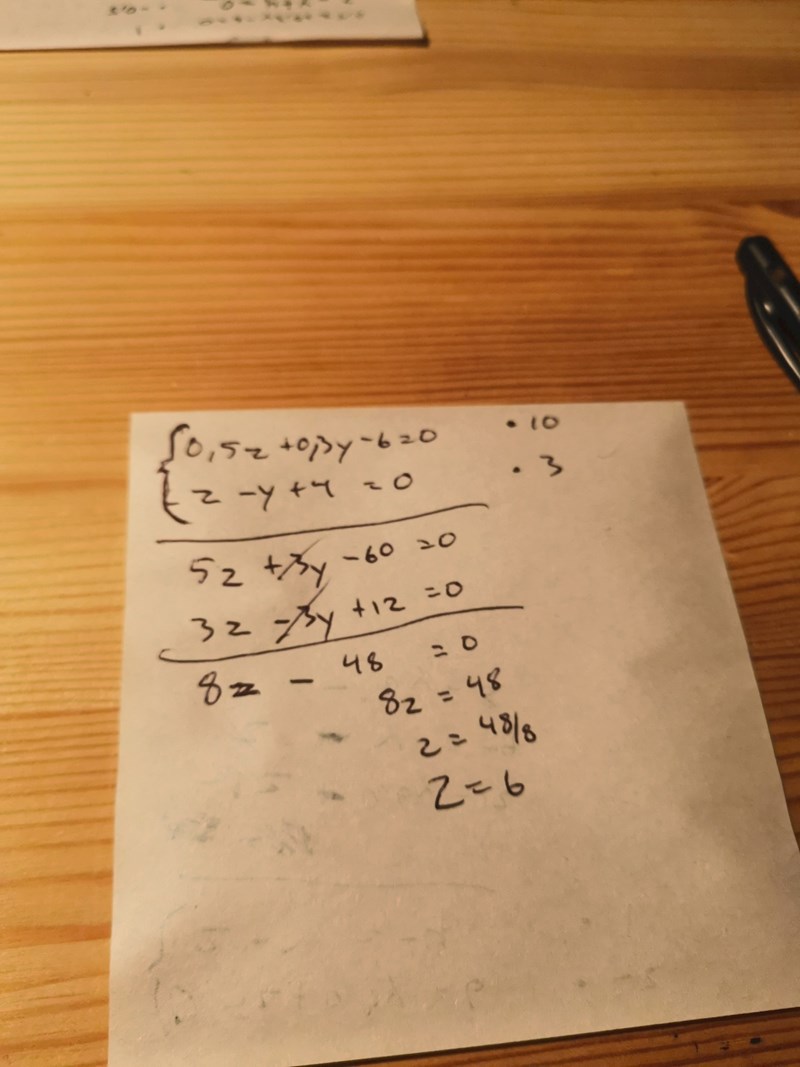 0,5z +0,3y -6=0 · 10
z - y + 4 = 0 · 3
5z +3y -60 =0
3z -3y +12 =0
8z - 48 = 0
8z = 48
z = 48/8
z = 6